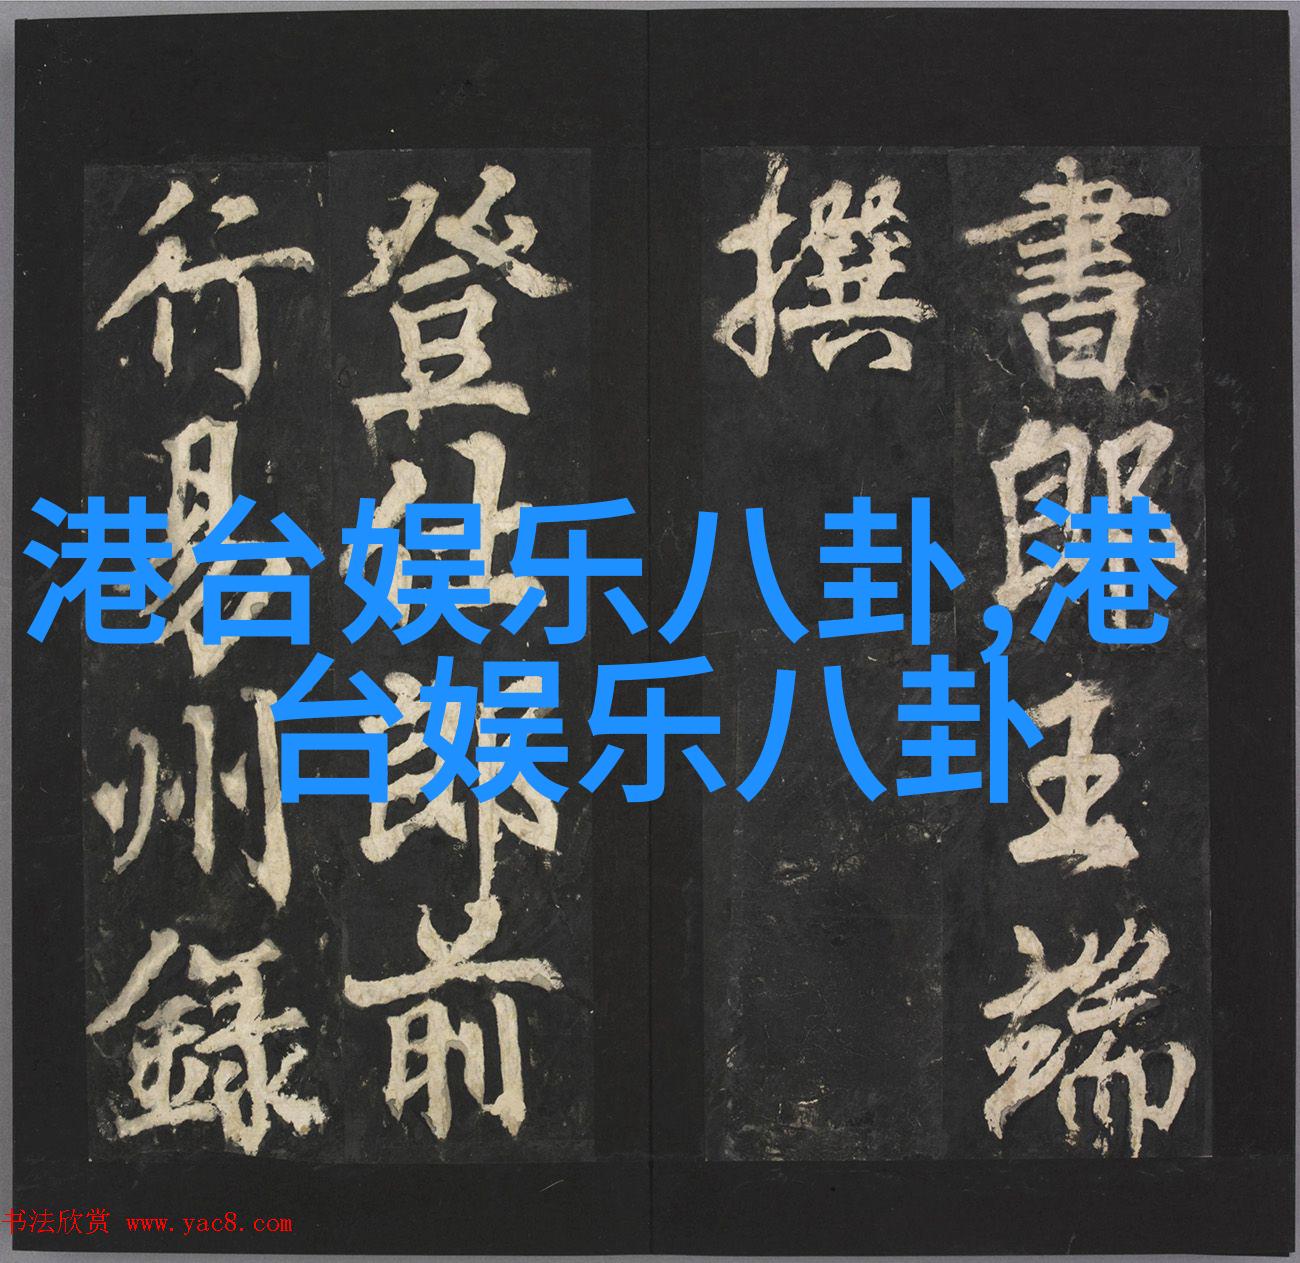 書郎王端
撰
登仕郎前
行易州録
港台娱乐八卦,港
台娱乐八卦
书法欣赏 www.yac8.com